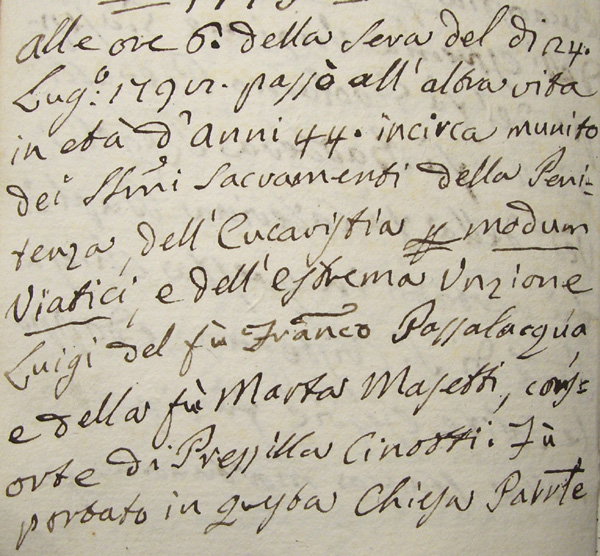 alle ore 6. della Sera del dì 24.
Lug.º 1792. passò all' altra vita
in età d'Anni 44. incirca munito
dei SSmi Sacramenti della Peni-
tenza, dell' Eucaristia p modum
Viatici, e dell' estrema Unzione
Luigi del fù Franco Passalacqua
e della fù Marta Masetti, cons=
orte di Pressilla Cinotti. Fù
portato in questa Chiesa Parrte